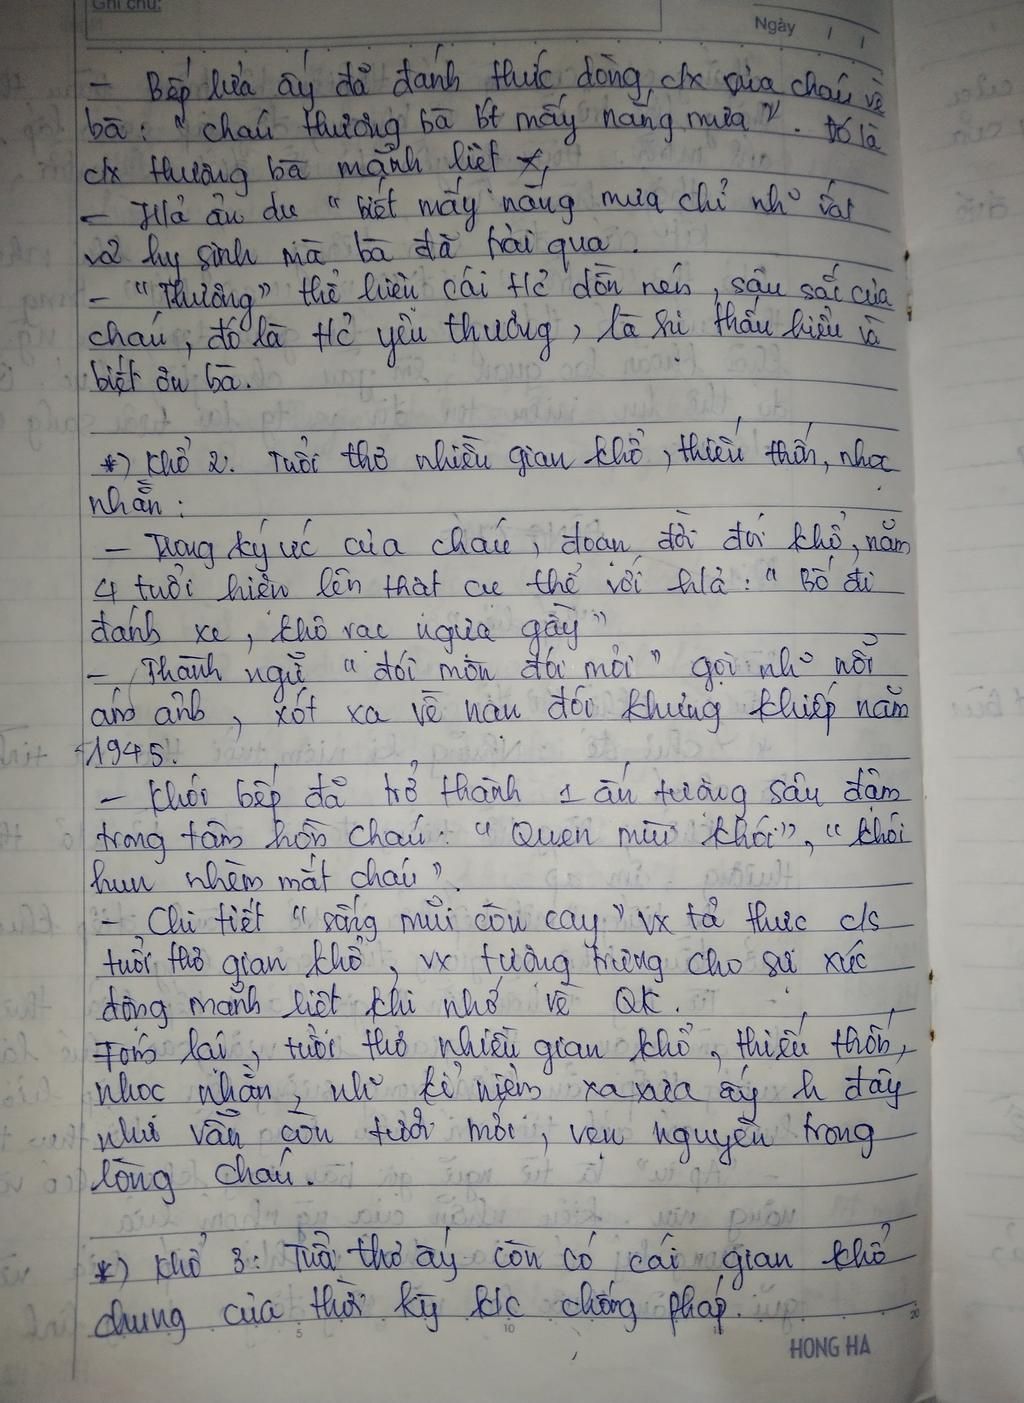 Ghi chú:
Ngày / /
- Bếp lửa ấy đã đánh thức dòng c/x của cháu về
bà: " cháu thương bà bt mấy nắng mưa". Đó là
c/x thương bà mãnh liệt
- H/ả ẩn dụ " biết mấy nắng mưa chỉ nh~ vất
vả hy sinh mà bà đã trải qua.
- "Thương" thể hiện cái t/c dồn nén, sâu sắc của
cháu, đó là t/c yêu thương, là sự thấu hiểu và
biết ơn bà.
*) Khổ 2: Tuổi thơ nhiều gian khổ, thiếu thốn, nhọc
nhằn:
- Trong ký ức của cháu, đoạn đời đói khổ, năm
4 tuổi hiện lên thật cụ thể với h/ả: " Bố đi
đánh xe, khô rạc ngựa gầy"
- Thành ngữ " đói mòn đói mỏi" gợi nh~ nỗi
ám ảnh, xót xa về nạn đói khủng khiếp năm
1945.
- Khói bếp đã trở thành 1 ấn tượng sâu đậm
trong tâm hồn cháu: " Quen mùi khói", " khói
hun nhèm mắt cháu".
- Chi tiết " sống mũi còn cay" vx tả thực c/s
tuổi thơ gian khổ, vx tượng trưng cho sự xúc
động mãnh liệt khi nhớ về QK.
Tóm lại, tuổi thơ nhiều gian khổ, thiếu thốn,
nhọc nhằn, nh~ kỉ niệm xa xưa ấy h đây
như vẫn còn tươi mới, vẹn nguyên trong
lòng cháu.
*) Khổ 3: Tuổi thơ ấy còn có cái gian khổ
chung của thời kỳ k/c chống pháp.
5 10 15 20
HONG HA